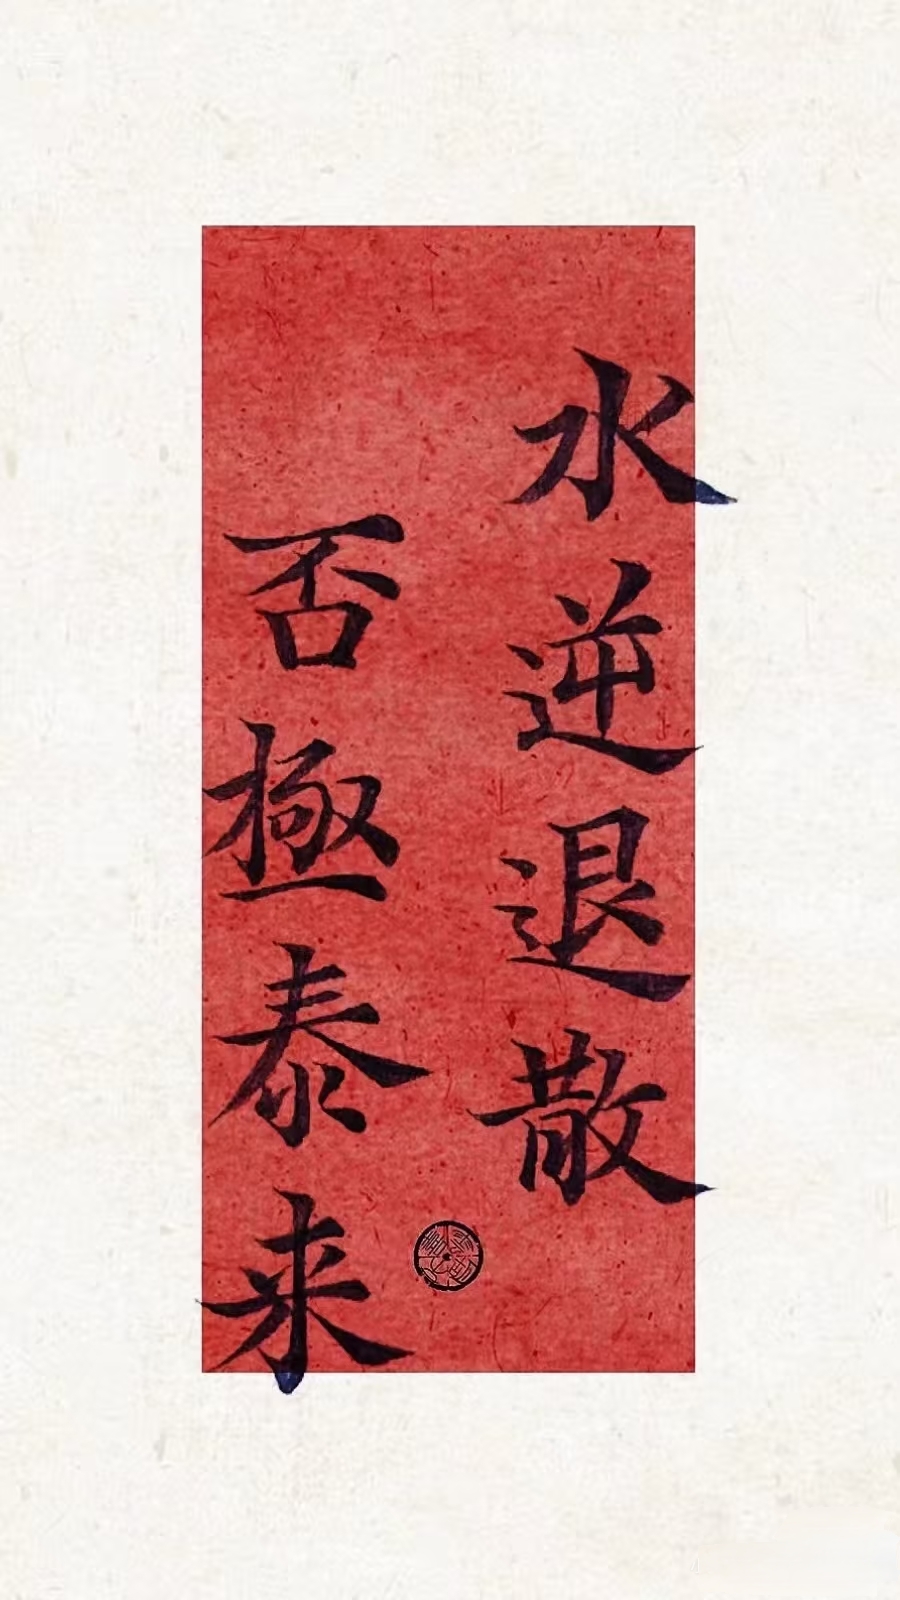 水逆退散
否極泰来